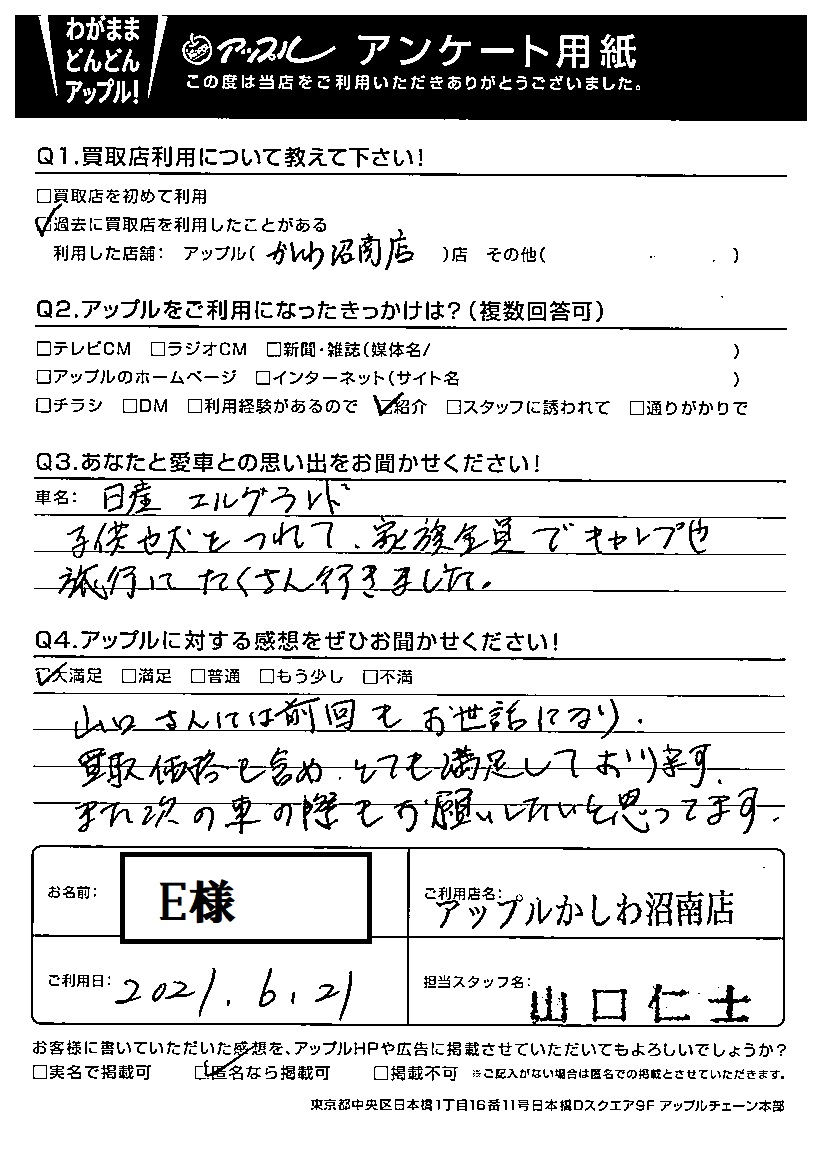 わがまま
どんどん
アップル!
アップル アンケート用紙
この度は当店をご利用いただきありがとうございました。
Q1.買取店利用について教えて下さい!
□買取店を初めて利用
☑過去に買取店を利用したことがある
利用した店舗: アップル( かしわ沼南店 )店 その他( )
Q2.アップルをご利用になったきっかけは?(複数回答可)
□テレビCM □ラジオCM □新聞・雑誌(媒体名/ )
□アップルのホームページ □インターネット(サイト名 )
□チラシ □DM □利用経験があるので ☑紹介 □スタッフに誘われて □通りがかりで
Q3.あなたと愛車との思い出をお聞かせください!
車名: 日産 エルグランド
子供や犬をつれて、家族全員でキャンプや
旅行にたくさん行きました。
Q4.アップルに対する感想をぜひお聞かせください!
☑大満足 □満足 □普通 □もう少し □不満
山口さんには前回もお世話になり、
買取価格も含め、とても満足しております。
また次の車の際もお願いしたいと思ってます。
お名前: E様
ご利用店名: アップルかしわ沼南店
ご利用日: 2021.6.21
担当スタッフ名: 山口仁士
お客様に書いていただいた感想を、アップルHPや広告に掲載させていただいてもよろしいでしょうか?
□実名で掲載可 ☑匿名なら掲載可 □掲載不可 ※ご記入がない場合は匿名での掲載とさせていただきます。
東京都中央区日本橋1丁目16番11号日本橋Dスクエア9F アップルチェーン本部